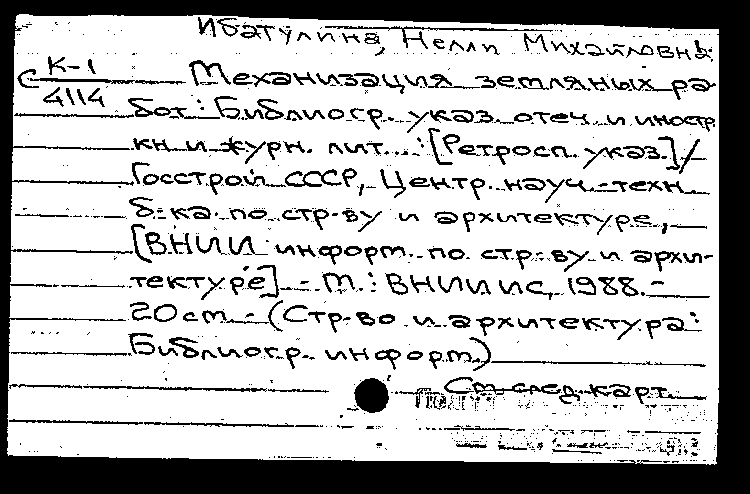 Ибатулина, Нелли Михайловна.
С К-1
4114
Механизация земляных ра-
бот : Библиогр. указ. отеч. и иностр.
кн. и журн. лит. ... : [Ретросп. указ.] /
Госстрой СССР, Центр. науч.-техн.
б-ка по стр-ву и архитектуре,
[ВНИИ информ. по стр-ву и архи-
тектуре]. - М. : ВНИИИС, 1988. -
20 см. - (Стр-во и архитектура :
Библиогр. информ.)
См. след. карт.